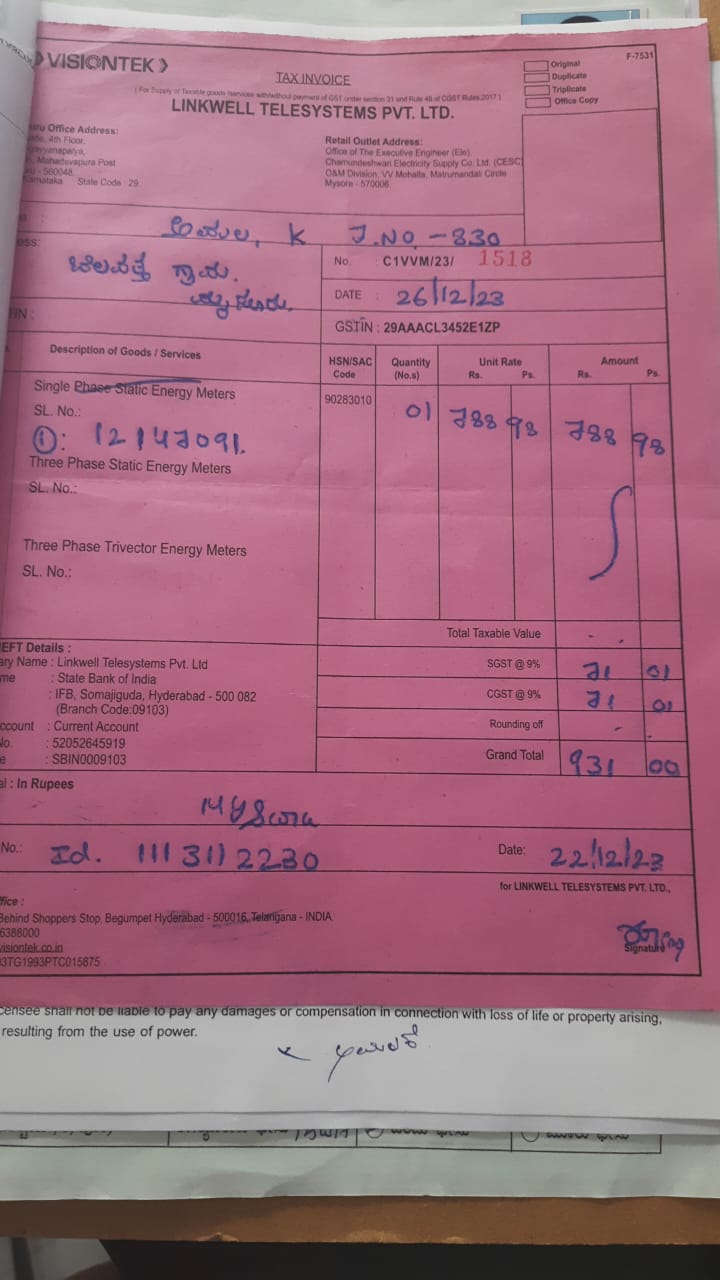 VISIONTEK
F-7531
TAX INVOICE
( For Supply of Taxable goods /services with/without payment of GST under section 31 and Rule 46 of CGST Rules,2017 )
LINKWELL TELESYSTEMS PVT. LTD.
Original
Duplicate
Triplicate
Office Copy
Office Address:
4th Floor,
Mahadevapura Post
- 560048,
State Code : 29
Retail Outlet Address:
Office of The Executive Engineer (Ele),
Chamundeshwari Electricity Supply Co. Ltd. (CESC)
O&M Division, VV Mohalla, Matrumandali Circle
Mysore - 570006
K J.NO. - 330
ಗ್ರಾಮ.
No. : C1VVM/23/ 1518
DATE : 26/12/23
GSTIN : 29AAACL3452E1ZP
Description of Goods / Services
HSN/SAC Code
Quantity (No.s)
Unit Rate Rs. Ps.
Amount Rs. Ps.
Single Phase Static Energy Meters
90283010 01 788 98 788 98
SL. No.:
①: 12147091.
Three Phase Static Energy Meters
SL. No.:
Three Phase Trivector Energy Meters
SL. No.:
Total Taxable Value - .
EFT Details :
Name : Linkwell Telesystems Pvt. Ltd
: State Bank of India
: IFB, Somajiguda, Hyderabad - 500 082
(Branch Code:09103)
: Current Account
: 52052645919
: SBIN0009103
SGST @ 9% 71 01
CGST @ 9% 71 01
Rounding off - -
Grand Total 931 00
: In Rupees
No.: Id. 111311 2230
Date: 22/12/23
for LINKWELL TELESYSTEMS PVT. LTD.,
Behind Shoppers Stop, Begumpet Hyderabad - 500016, Telangana - INDIA.
6388000
visiontek.co.in
3TG1993PTC015875
Signature
shall not be liable to pay any damages or compensation in connection with loss of life or property arising,
resulting from the use of power.